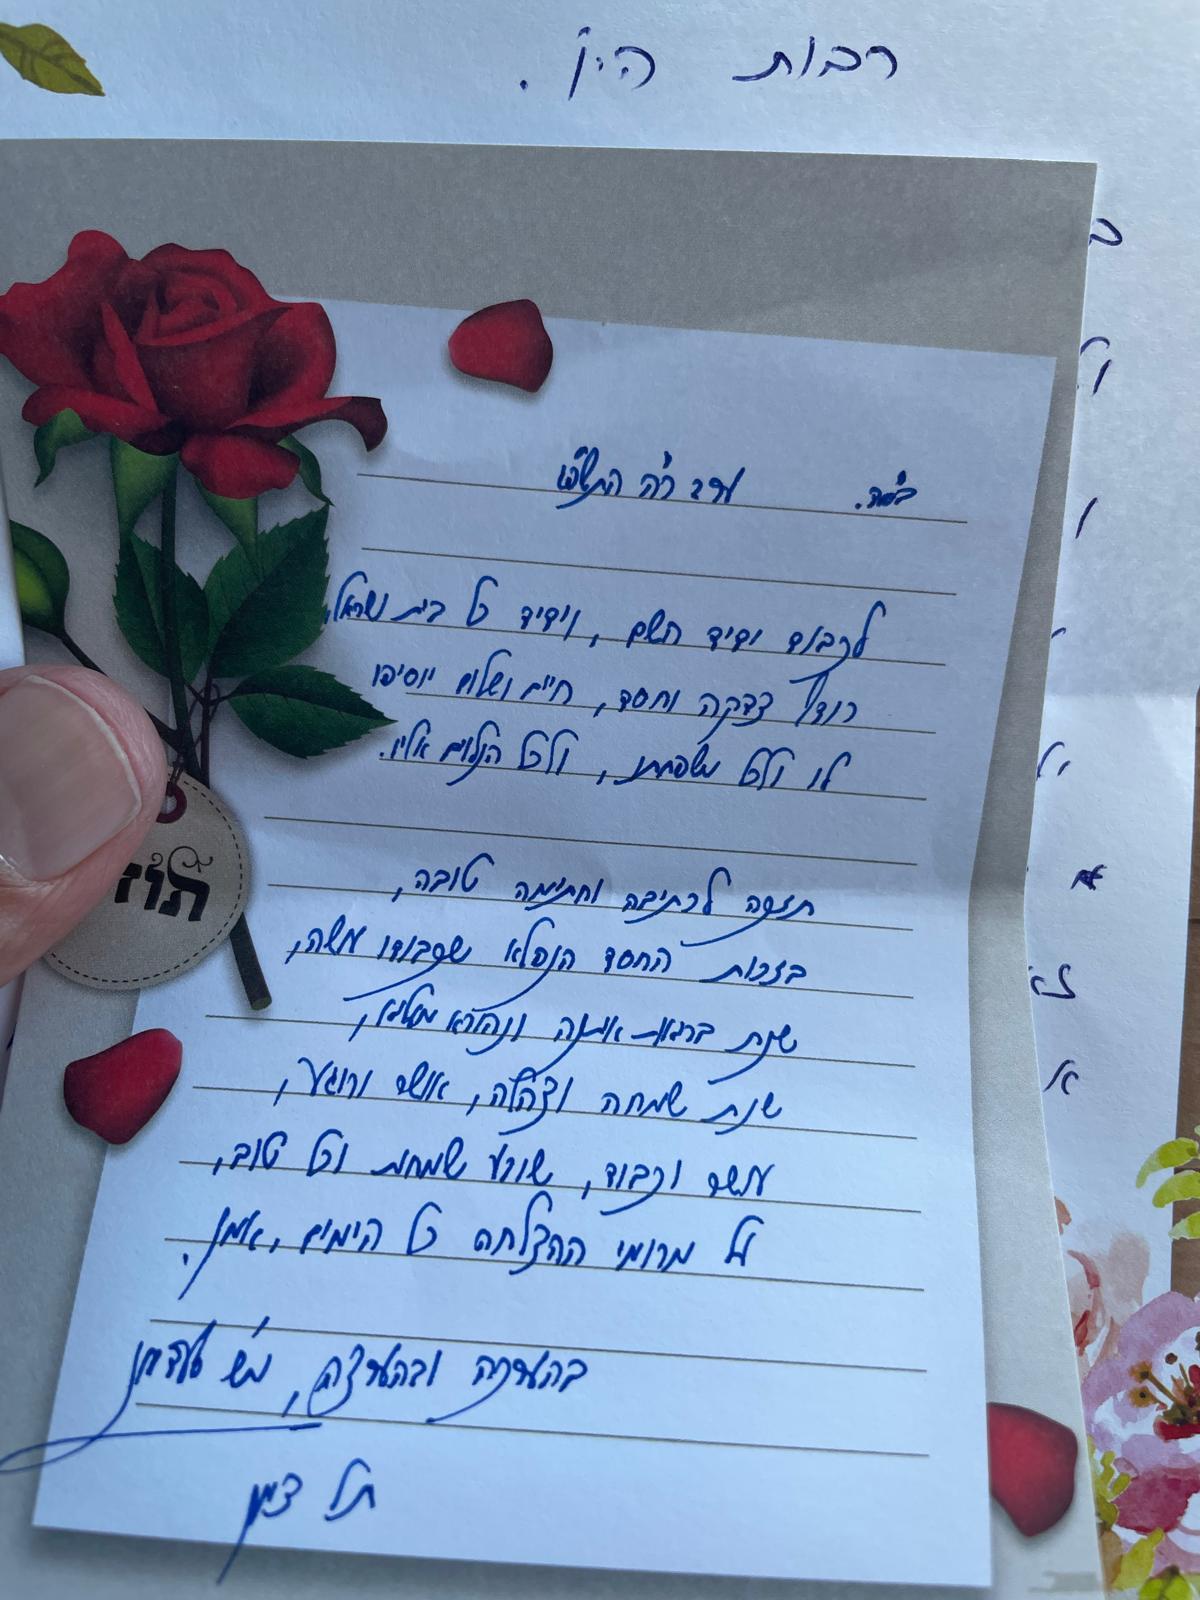 רבות היו.
בס"ד. ערב ר"ה התשפ"ט
לכבוד ידיד השם, וידיד כל בית ישראל,
רודף צדקה וחסד, חיים ושלום יוסיפו
לו ולכל משפחתו, ולכל הנלוים אליו.
תזכה לכתיבה וחתימה טובה,
בזכות החסד הנפלא שכבודו עושה,
שנת בריאות איתנה ונהורא מעליא,
שנת שמחה וצהלה, אושר ורוגע,
עושר וכבוד, שובע שמחות וכל טוב,
על מרומי ההצלחה כל הימים, אמן.
בהערכה ובהערצה,
תל ציון